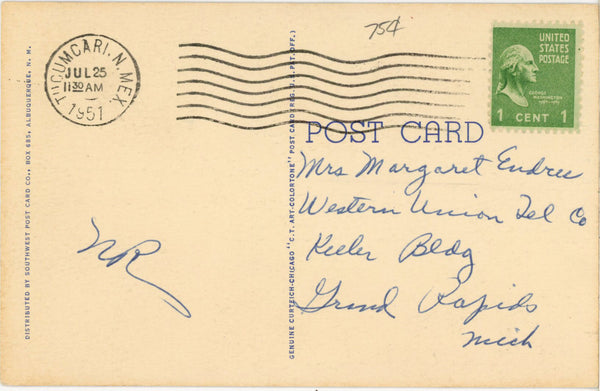 75¢
TUCUMCARI, N. MEX.
JUL 25
11 30 AM
1951
UNITED
STATES
POSTAGE
GEORGE
WASHINGTON
1 CENT 1
POST CARD
Mrs Margaret Endres
Western Union Tel Co
Keeler Bldg
Grand Rapids
Mich
NR
DISTRIBUTED BY SOUTHWEST POST CARD CO., BOX 685, ALBUQUERQUE, N. M.
GENUINE CURTEICH-CHICAGO "C.T. ART-COLORTONE" POST CARD (REG. U.S. PAT. OFF.)